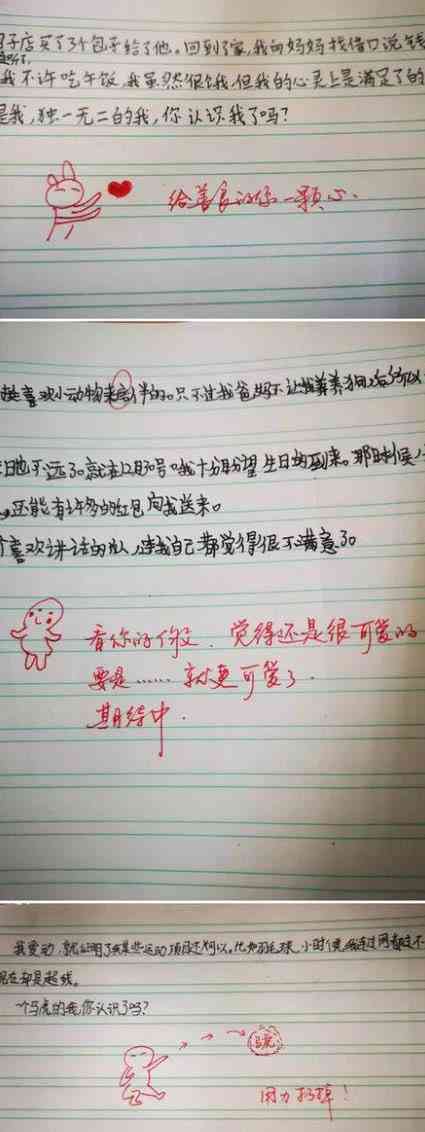 子店买了3个包子给了他。回到了家,我的妈妈找借口说钱
我不许吃午饭,我虽然很饿,但我的心灵上是满足了的
是我,独一无二的我,你认识我了吗?
给善良的你一颗心.
喜欢小动物来陪伴的。只不过我爸妈不让我养狗
日也不远了。就在12月30号。我十分盼望生日的到来。那时候
还能有许多的红包向我送来。
喜欢讲话的人,连我自己都觉得很不满意了。
看你的作文.觉得还是很可爱的
要是……就更可爱了.
期待中.
我爱动,就证明了我某些运动项目还可以。比如羽毛球,小时候我连过网都过不
现在却是超线。
一个马虎的我,你认识了吗?
马虎
用力扔掉!